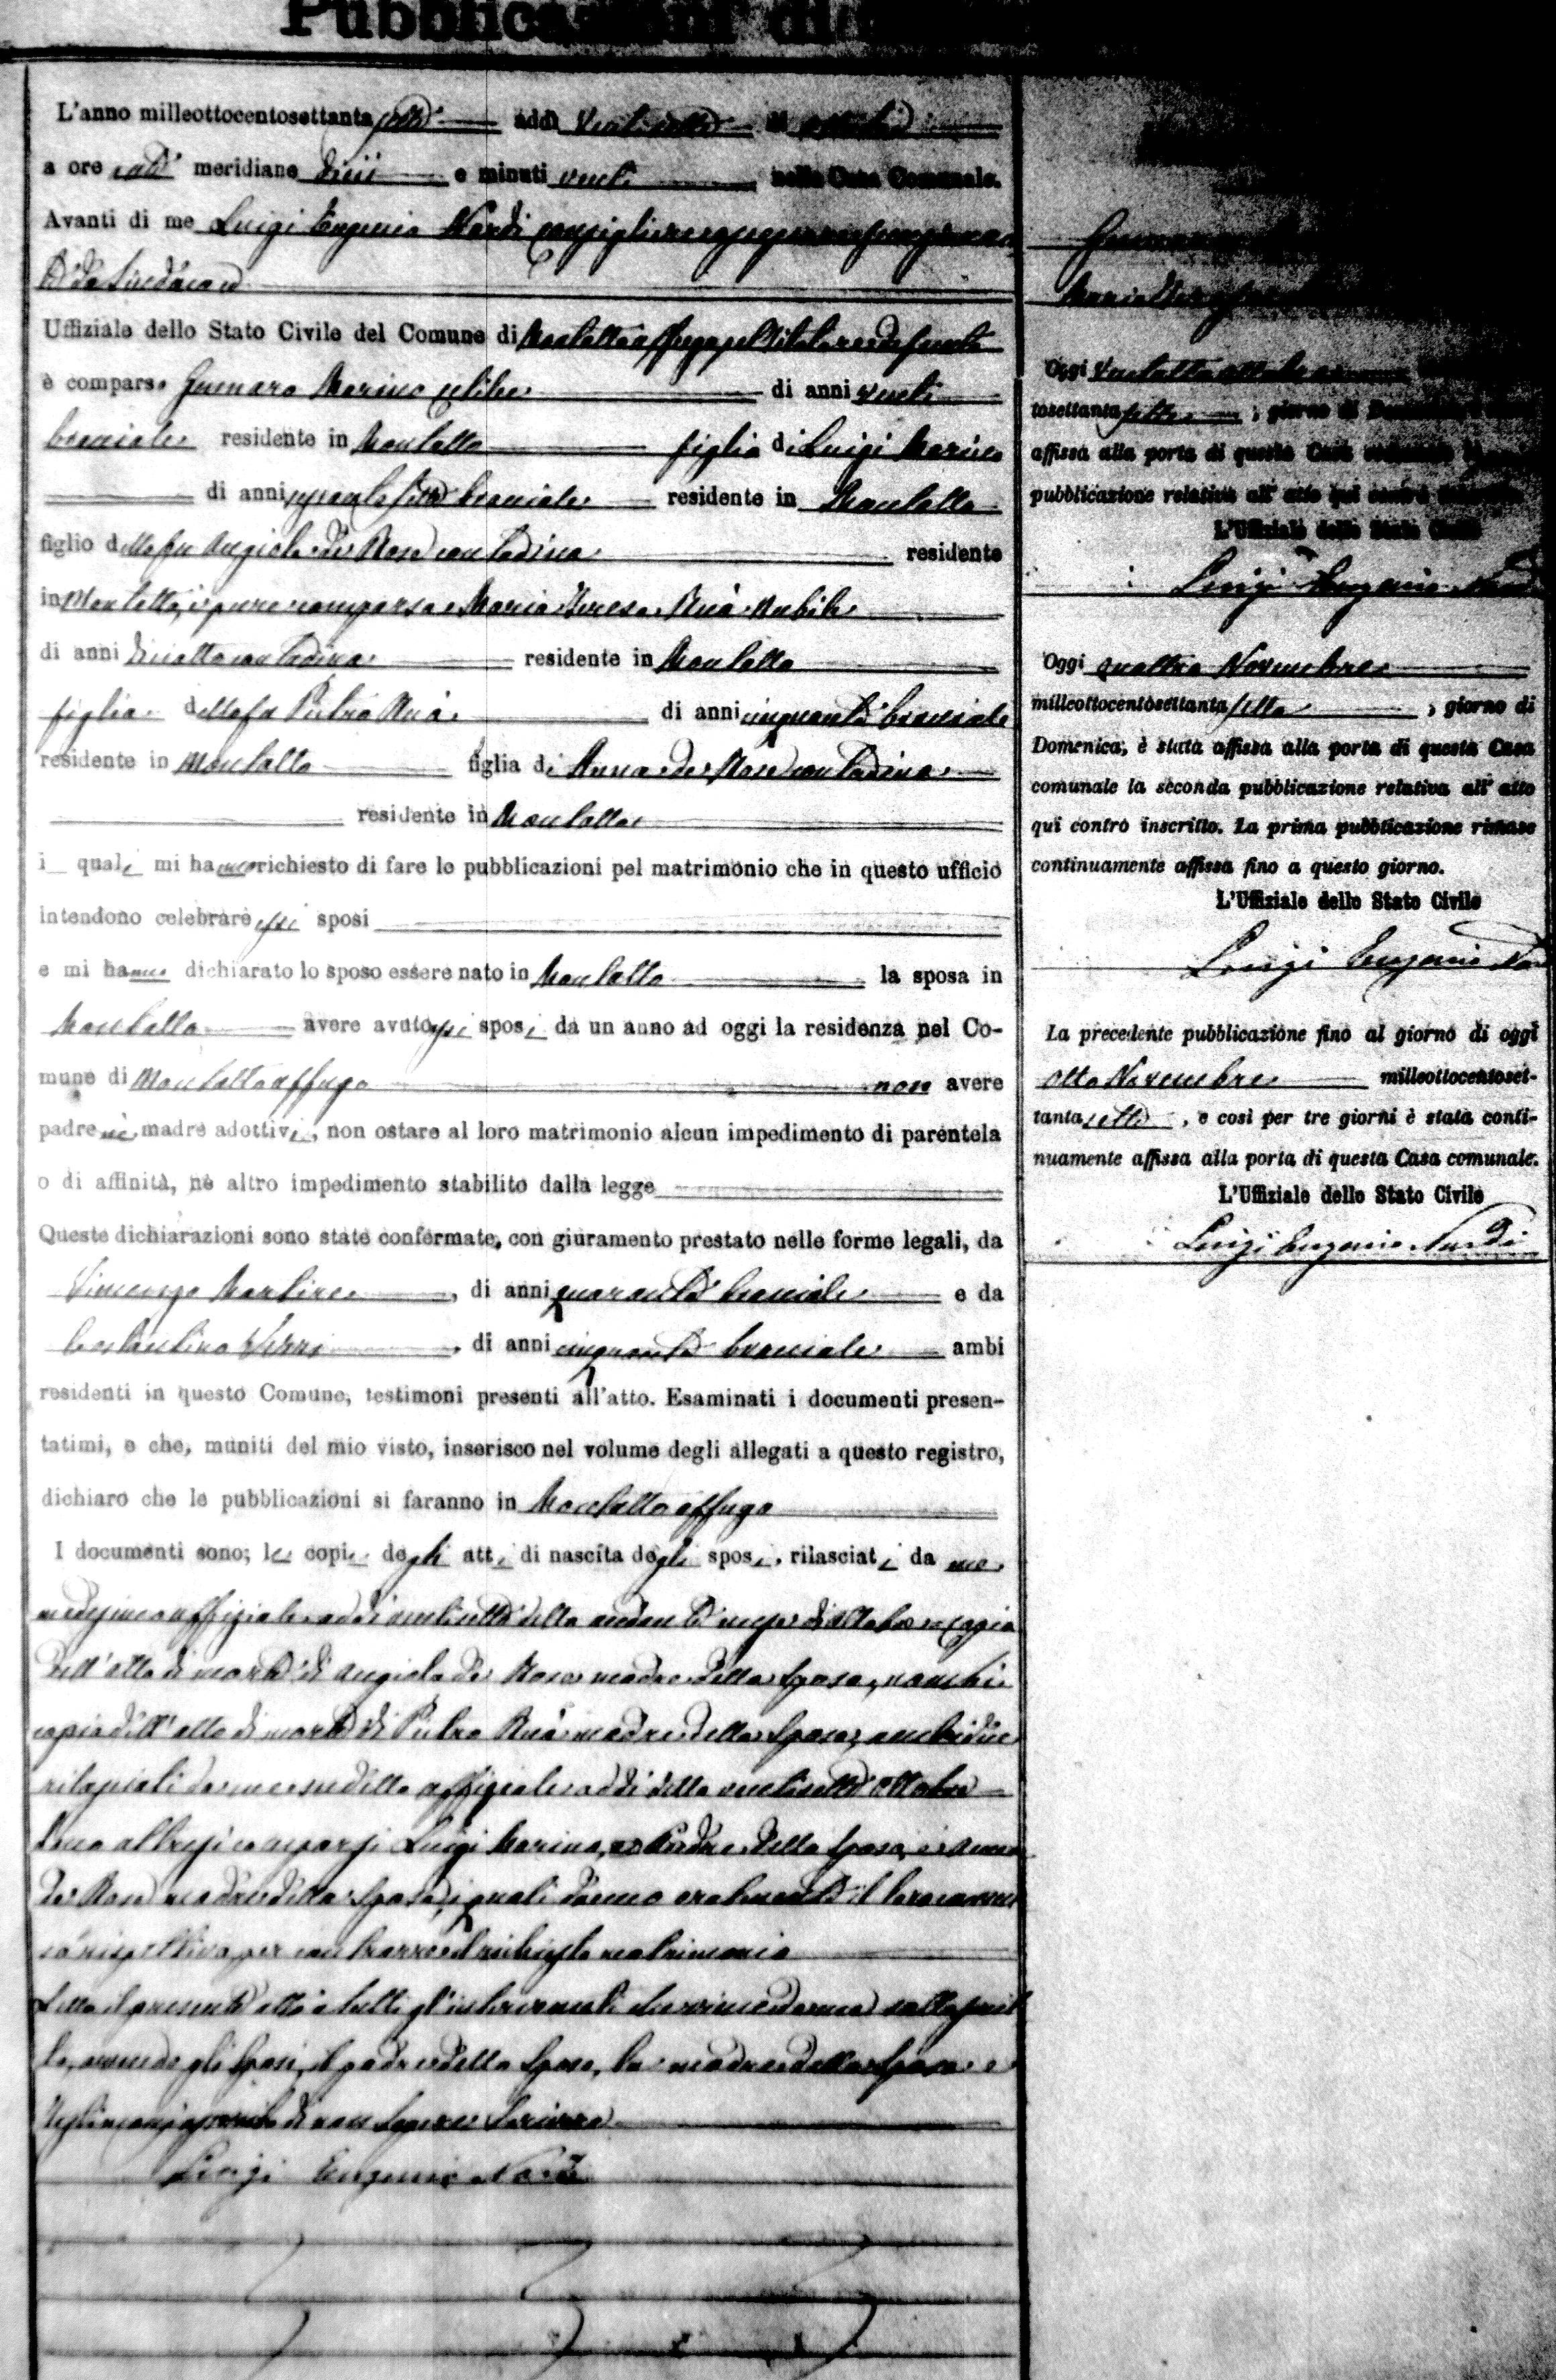 Pubblicazioni di
L'anno milleottocentosettanta sette addì Ventisette di ottobre
a ore anti meridiane dieci e minuti venti nella Casa Comunale.
Avanti di me Luigi Eugenio Nardi consigliere
Uffiziale dello Stato Civile del Comune di Montalto uffugo pel
è comparso Gennaro Marino celibe di anni venti
bracciale residente in Montalto figlio di Luigi Marino
di anni bracciale residente in Montalto
figlio della fu Angiola de Rose contadina residente
in Montalto, è pure comparsa Maria Teresa Ruà Nubile
di anni diciotto contadina residente in Montalto
figlia del fu Pietro Ruà di anni cinquanta bracciale
residente in Montalto figlia di Anna de Rose contadina
residente in Montalto
i quali mi hanno richiesto di fare le pubblicazioni pel matrimonio che in questo ufficio
intendono celebrare essi sposi
e mi hanno dichiarato lo sposo essere nato in Montalto la sposa in
Montalto avere avuto essi sposi da un anno ad oggi la residenza nel Co-
mune di Montalto uffugo non avere
padre nè madre adottivi, non ostare al loro matrimonio alcun impedimento di parentela
o di affinità, nè altro impedimento stabilito dalla legge
Queste dichiarazioni sono state confermate, con giuramento prestato nelle forme legali, da
Vincenzo Martire, di anni quaranta bracciale e da
Costantino, di anni cinquanta bracciale ambi
residenti in questo Comune, testimoni presenti all'atto. Esaminati i documenti presen-
tatimi, e che, muniti del mio visto, inserisco nel volume degli allegati a questo registro,
dichiaro che le pubblicazioni si faranno in Montalto uffugo
I documenti sono; le copie degli atti di nascita degli sposi, rilasciati da me
medesimo uffiziale addì ventisette dello andante mese di ottobre copia
dell'atto di morte di Angiola de Rose madre dello sposo, nonché
copia dell'atto di morte di Pietro Ruà madre della sposa, ambidue
rilasciati da me suddetto uffiziale addì detto ventisette ottobre
Sono altresì comparsi Luigi Marino, Padre dello sposo, e Anna
de Rose madre della sposa, i quali danno oralmente il loro
rispettivo per contrarre il richiesto matrimonio
Letto il presente atto a tutti gl'intervenuti
avendo gli sposi, il padre dello sposo, la madre della sposa e
di non sapere scrivere
Luigi Eugenio Nardi
Gennaro
Maria Teresa
Oggi Ventotto ottobre
tosettanta sette, giorno di Domenica
affissa alla porta di questa Casa comunale
pubblicazione relativa all'atto qui contro
L'Uffiziale dello Stato Civile
Luigi Eugenio Nardi
Oggi quattro Novembre
milleottocentosettanta sette, giorno di
Domenica, è stata affissa alla porta di questa Casa
comunale la seconda pubblicazione relativa all'atto
qui contro inscritto. La prima pubblicazione rimase
continuamente affissa fino a questo giorno.
L'Uffiziale dello Stato Civile
Luigi Eugenio Nardi
La precedente pubblicazione fino al giorno di oggi
otto Novembre milleottocentoset-
tanta sette, e così per tre giorni è stata conti-
nuamente affissa alla porta di questa Casa comunale.
L'Uffiziale dello Stato Civile
Luigi Eugenio Nardi